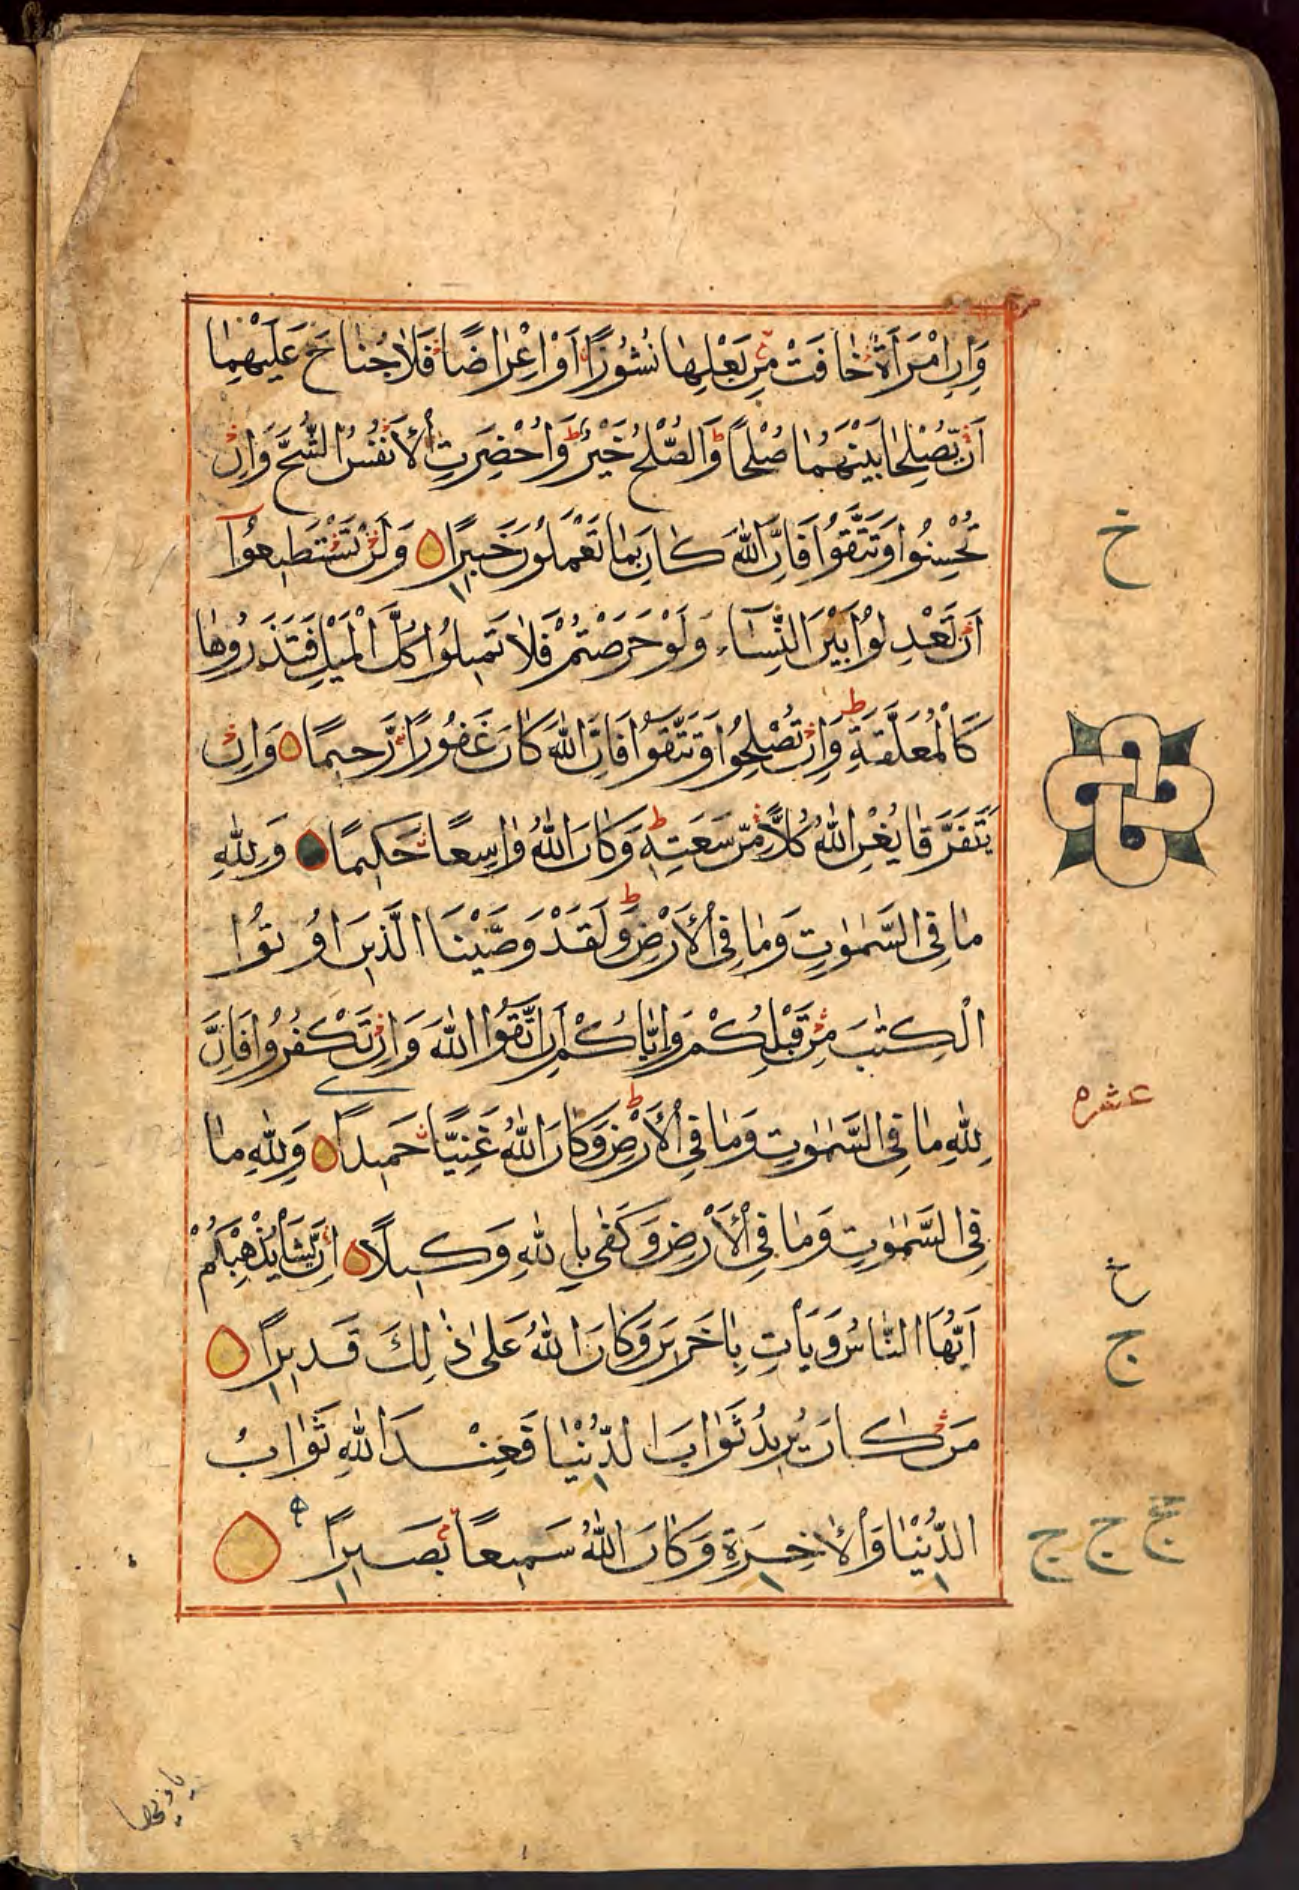 وَاِنِ امْرَاَةٌ خَافَتْ مِنْ بَعْلِهَا نُشُوْزًا اَوْ اِعْرَاضًا فَلَا جُنَاحَ عَلَيْهِمَا
اَنْ يُّصْلِحَا بَيْنَهُمَا صُلْحًا ط وَالصُّلْحُ خَيْرٌ ط وَاُحْضِرَتِ الْاَنْفُسُ الشُّحَّ وَاِنْ
تُحْسِنُوْا وَتَتَّقُوْا فَاِنَّ اللّٰهَ كَانَ بِمَا تَعْمَلُوْنَ خَبِيْرًا وَلَنْ تَسْتَطِيْعُوْٓا
خ
اَنْ تَعْدِلُوْا بَيْنَ النِّسَآءِ وَلَوْ حَرَصْتُمْ فَلَا تَمِيْلُوْا كُلَّ الْمَيْلِ فَتَذَرُوْهَا
كَالْمُعَلَّقَةِ ط وَاِنْ تُصْلِحُوْا وَتَتَّقُوْا فَاِنَّ اللّٰهَ كَانَ غَفُوْرًا رَّحِيْمًا وَاِنْ
يَّتَفَرَّقَا يُغْنِ اللّٰهُ كُلًّا مِّنْ سَعَتِهٖ ط وَكَانَ اللّٰهُ وَاسِعًا حَكِيْمًا وَلِلّٰهِ
مَا فِى السَّمٰوٰتِ وَمَا فِى الْاَرْضِ ط وَلَقَدْ وَصَّيْنَا الَّذِيْنَ اُوْتُوْا
الْكِتٰبَ مِنْ قَبْلِكُمْ وَاِيَّاكُمْ اَنِ اتَّقُوا اللّٰهَ وَاِنْ تَكْفُرُوْا فَاِنَّ
عشره
لِلّٰهِ مَا فِى السَّمٰوٰتِ وَمَا فِى الْاَرْضِ ط وَكَانَ اللّٰهُ غَنِيًّا حَمِيْدًا وَلِلّٰهِ مَا
فِى السَّمٰوٰتِ وَمَا فِى الْاَرْضِ وَكَفٰى بِاللّٰهِ وَكِيْلًا اِنْ يَّشَاْ يُذْهِبْكُمْ
خ
اَيُّهَا النَّاسُ وَيَاْتِ بِاٰخَرِيْنَ وَكَانَ اللّٰهُ عَلٰى ذٰلِكَ قَدِيْرًا
ج
مَنْ كَانَ يُرِيْدُ ثَوَابَ الدُّنْيَا فَعِنْدَ اللّٰهِ ثَوَابُ
الدُّنْيَا وَالْاٰخِرَةِ وَكَانَ اللّٰهُ سَمِيْعًا بَصِيْرًا
ج ج ج
يا ايها